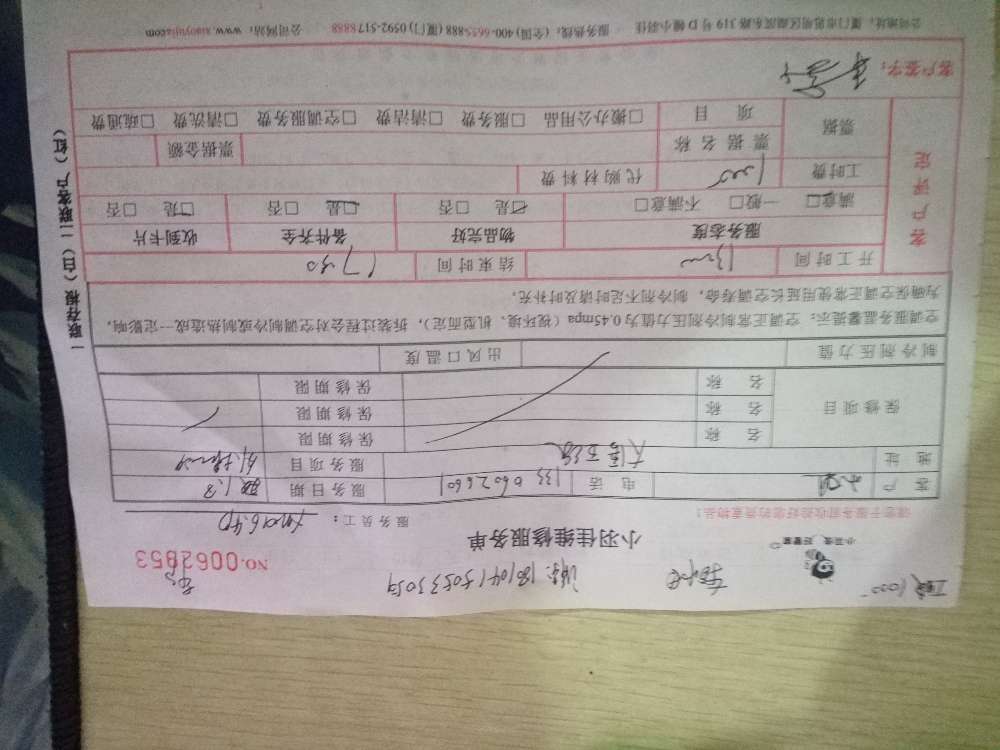 小羽佳 好管家
NO.0062853
小羽佳维修服务单
请您于服务前收拾好您的贵重物品！
服务员工：
客户 电话 服务日期
地址 服务项目
保修项目 名称 保修期限
名称 保修期限
名称 保修期限
制冷剂压力值 出风口温度
空调服务温馨提示：空调正常制冷剂压力值为0.45mpa（视环境、机型而定），拆装过程会对空调制冷或制热造成一定影响，
为确保空调正常使用延长空调寿命，制冷剂不足时请及时补充。
开工时间 结束时间
客户评定
服务态度 物品完好 备件齐全 收到卡片
满意□ 一般□ 不满意□ □是 □否 □是 □否 □是 □否
工时费 代购材料费
票据 票据名称 票据金额
项目 □搬办公用品 □服务费 □清洁费 □空调服务费 □清洗费 □疏通费
客户签字：
公司地址：厦门市思明区湖滨东路319号D幢小羽佳 服务热线：(全国) 400-6655-888 (厦门) 0592-5178888 公司网站：www.xiaoyujia.com
一联存根（白）二联客户（红）